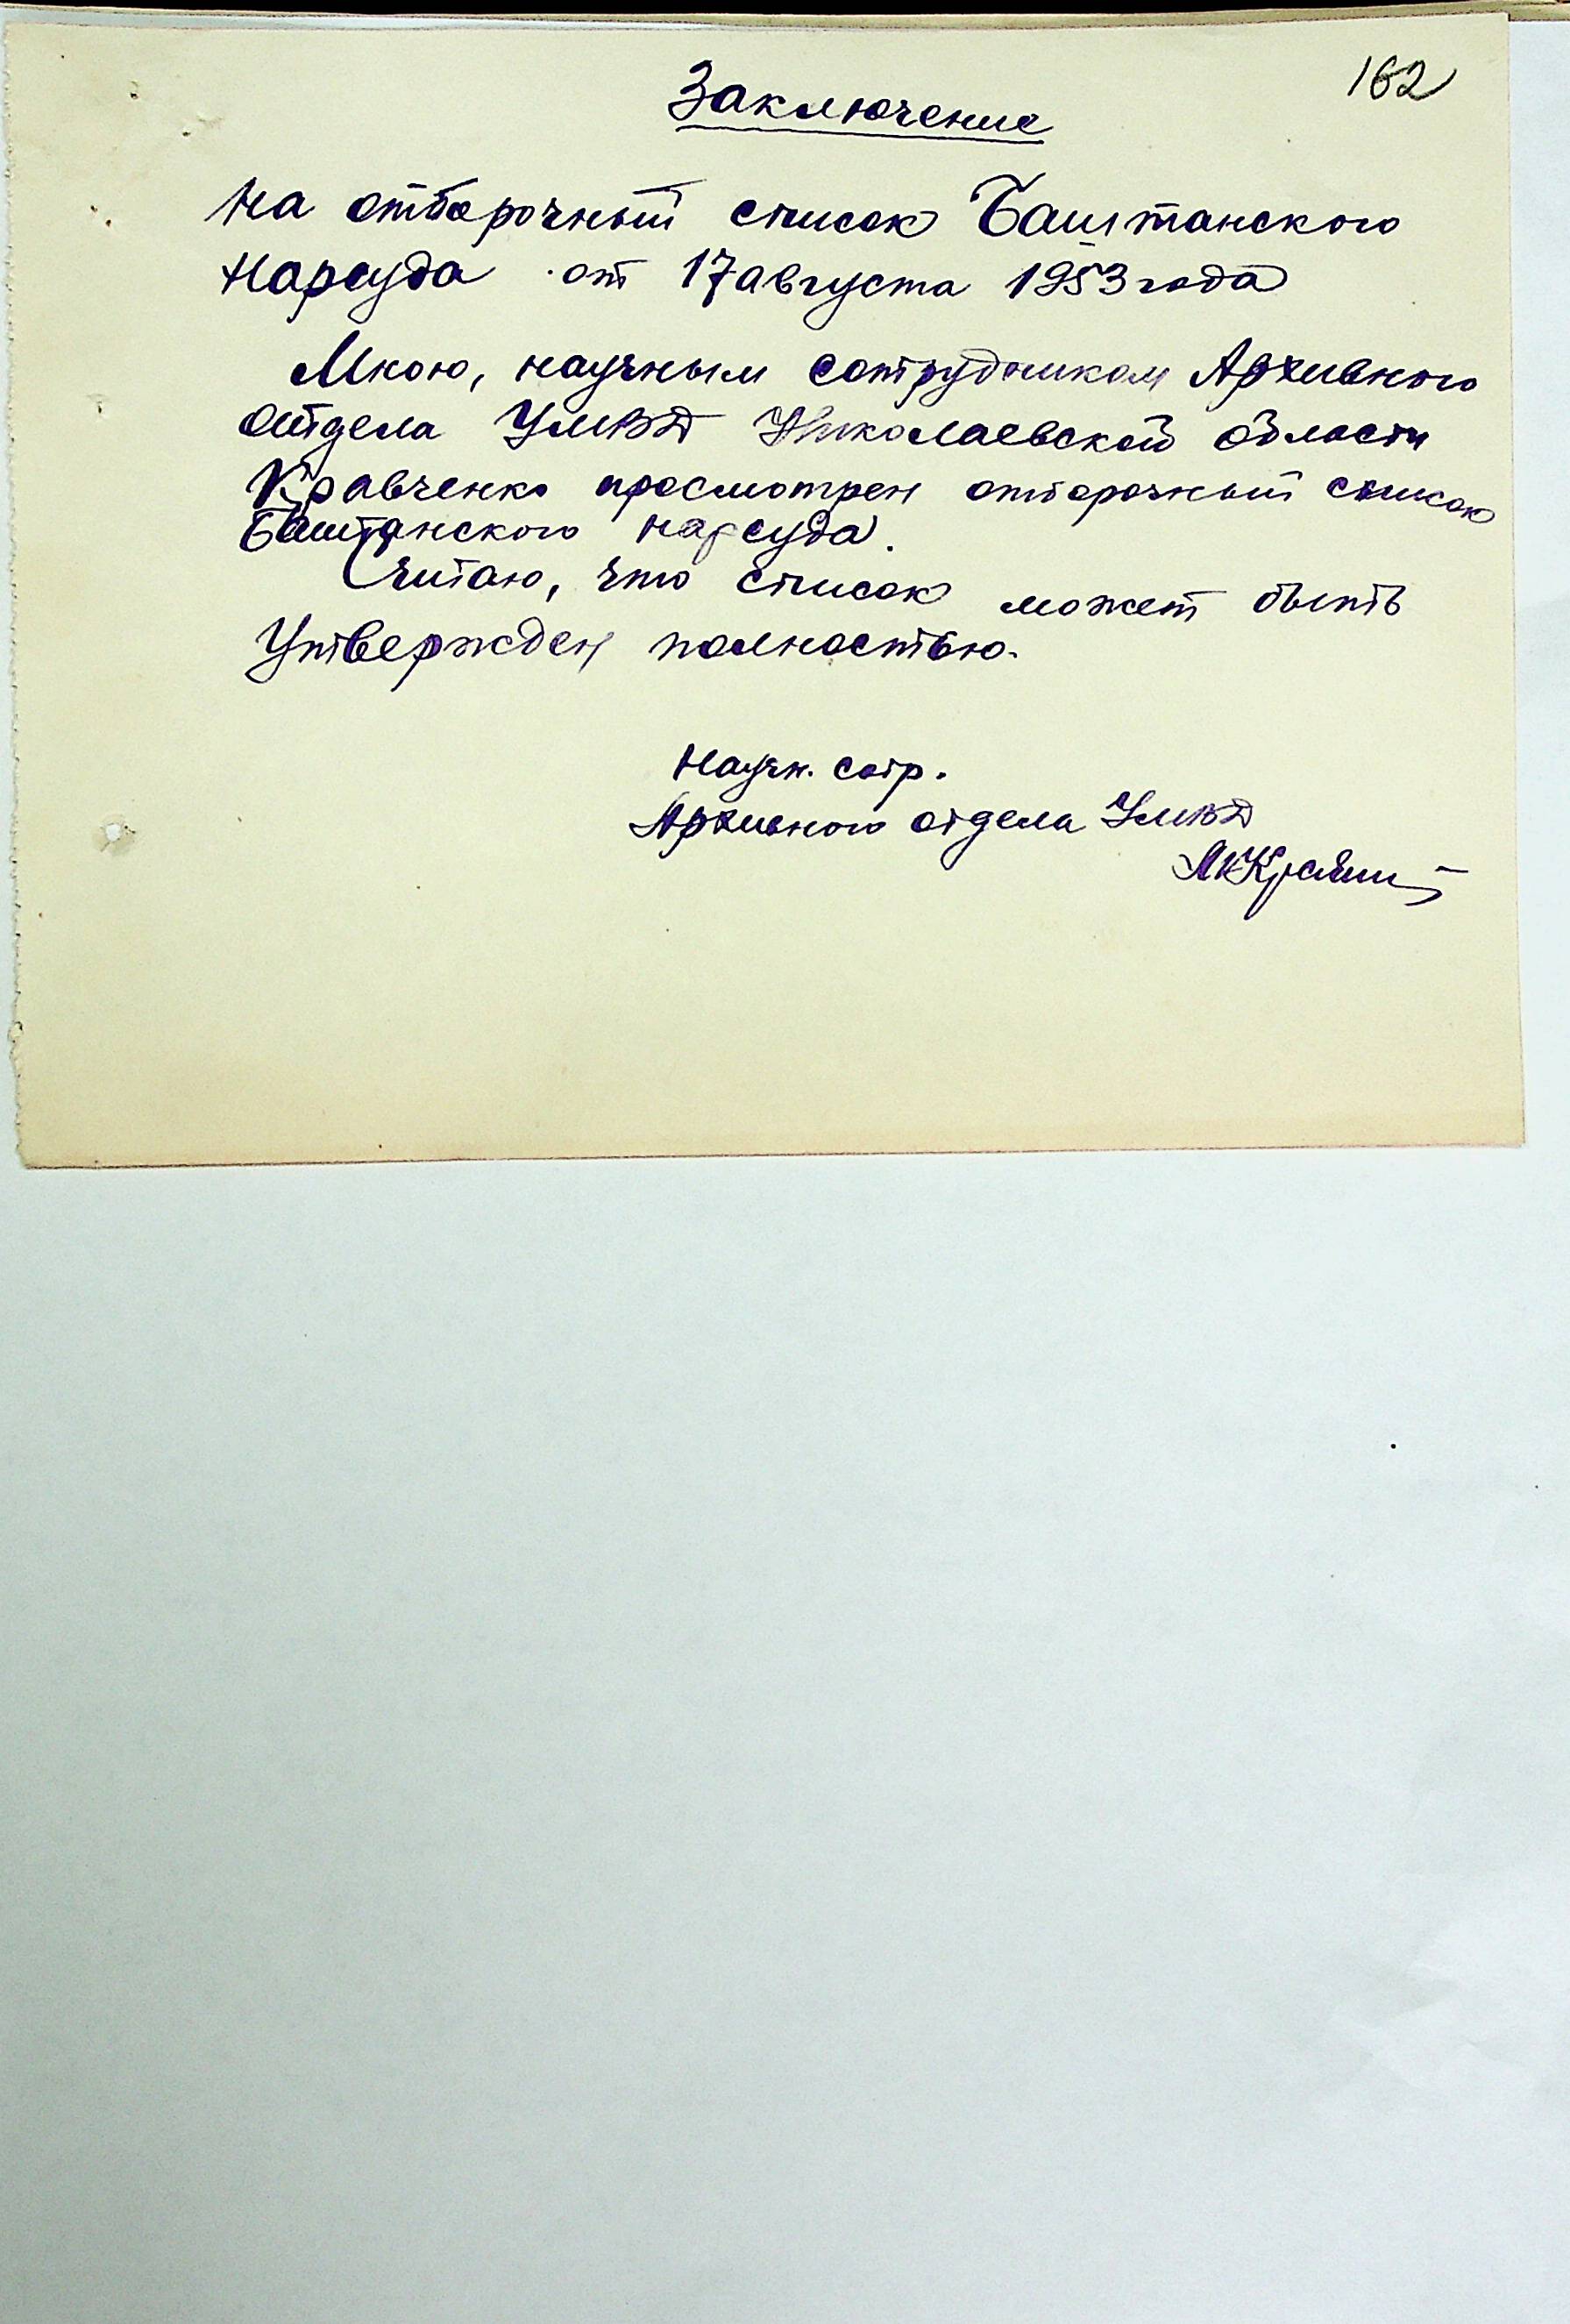 162
Заключение
на отборочный список Баштанского
Нарсуда от 17 августа 1953 года
Мною, научным сотрудником Архивного
отдела УМВД Николаевской области
Кравченко просмотрен отборочный список
Баштанского нарсуда.
Считаю, что список может быть
утвержден полностью.
Научн. сотр.
Архивного отдела УМВД